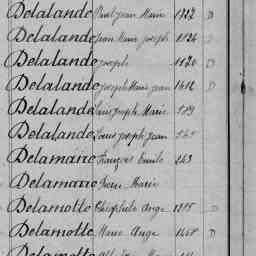 Delalande Paul Jean Marie 1222 D
Delalande Jean Marie Joseph 1124 D
Delalande Joseph 1170 D
Delalande Joseph Marie Jean 1412 D
Delalande Louis Joseph Marie
Delalande Louis Joseph Jean
Delamaire François Emile 263
Delamarre Pierre Marie
Delamotte Théophile Ange 1215 D
Delamotte Marie Ange 1448 D
Delamotte